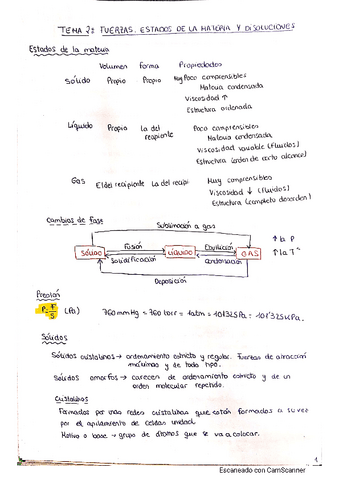 TEMA 2: FUERZAS. ESTADOS DE LA MATERIA Y DISOLUCIONES
Estados de la materia
Volumen Forma Propiedades
Sólido Propio Propio Muy Poco compresibles
Materia condensada
Viscosidad ↑
Estructura ordenada
Líquido Propio La del recipiente Poco compresibles
Materia condensada
Viscosidad variable (fluidos)
Estructura (orden de corto alcance)
Gas El del recipiente La del recipi Muy compresibles
Viscosidad ↓ (fluidos)
Estructura (completo desorden)
Cambios de fase
Sublimación a gas
↑ la P
Fusión Ebullición
SÓLIDO LÍQUIDO GAS ↑ la T
Solidificación Condensación
Deposición
Presión
P= F/S (Pa) 760 mmHg = 760 torr = 1 atm = 101325 Pa = 101'325 kPa.
Sólidos
Sólidos cristalinos → ordenamiento estricto y regular. Fuerzas de atracción
máximas y de todo tipo.
Sólidos amorfos → carecen de ordenamiento estricto y de un
orden molecular repetido.
Cristalinos
Formados por unas redes cristalinas que están formadas a su vez
por el apilamiento de celdas unidad.
Motivo o base → grupo de átomos que se va a colocar.
1
Escaneado con CamScanner